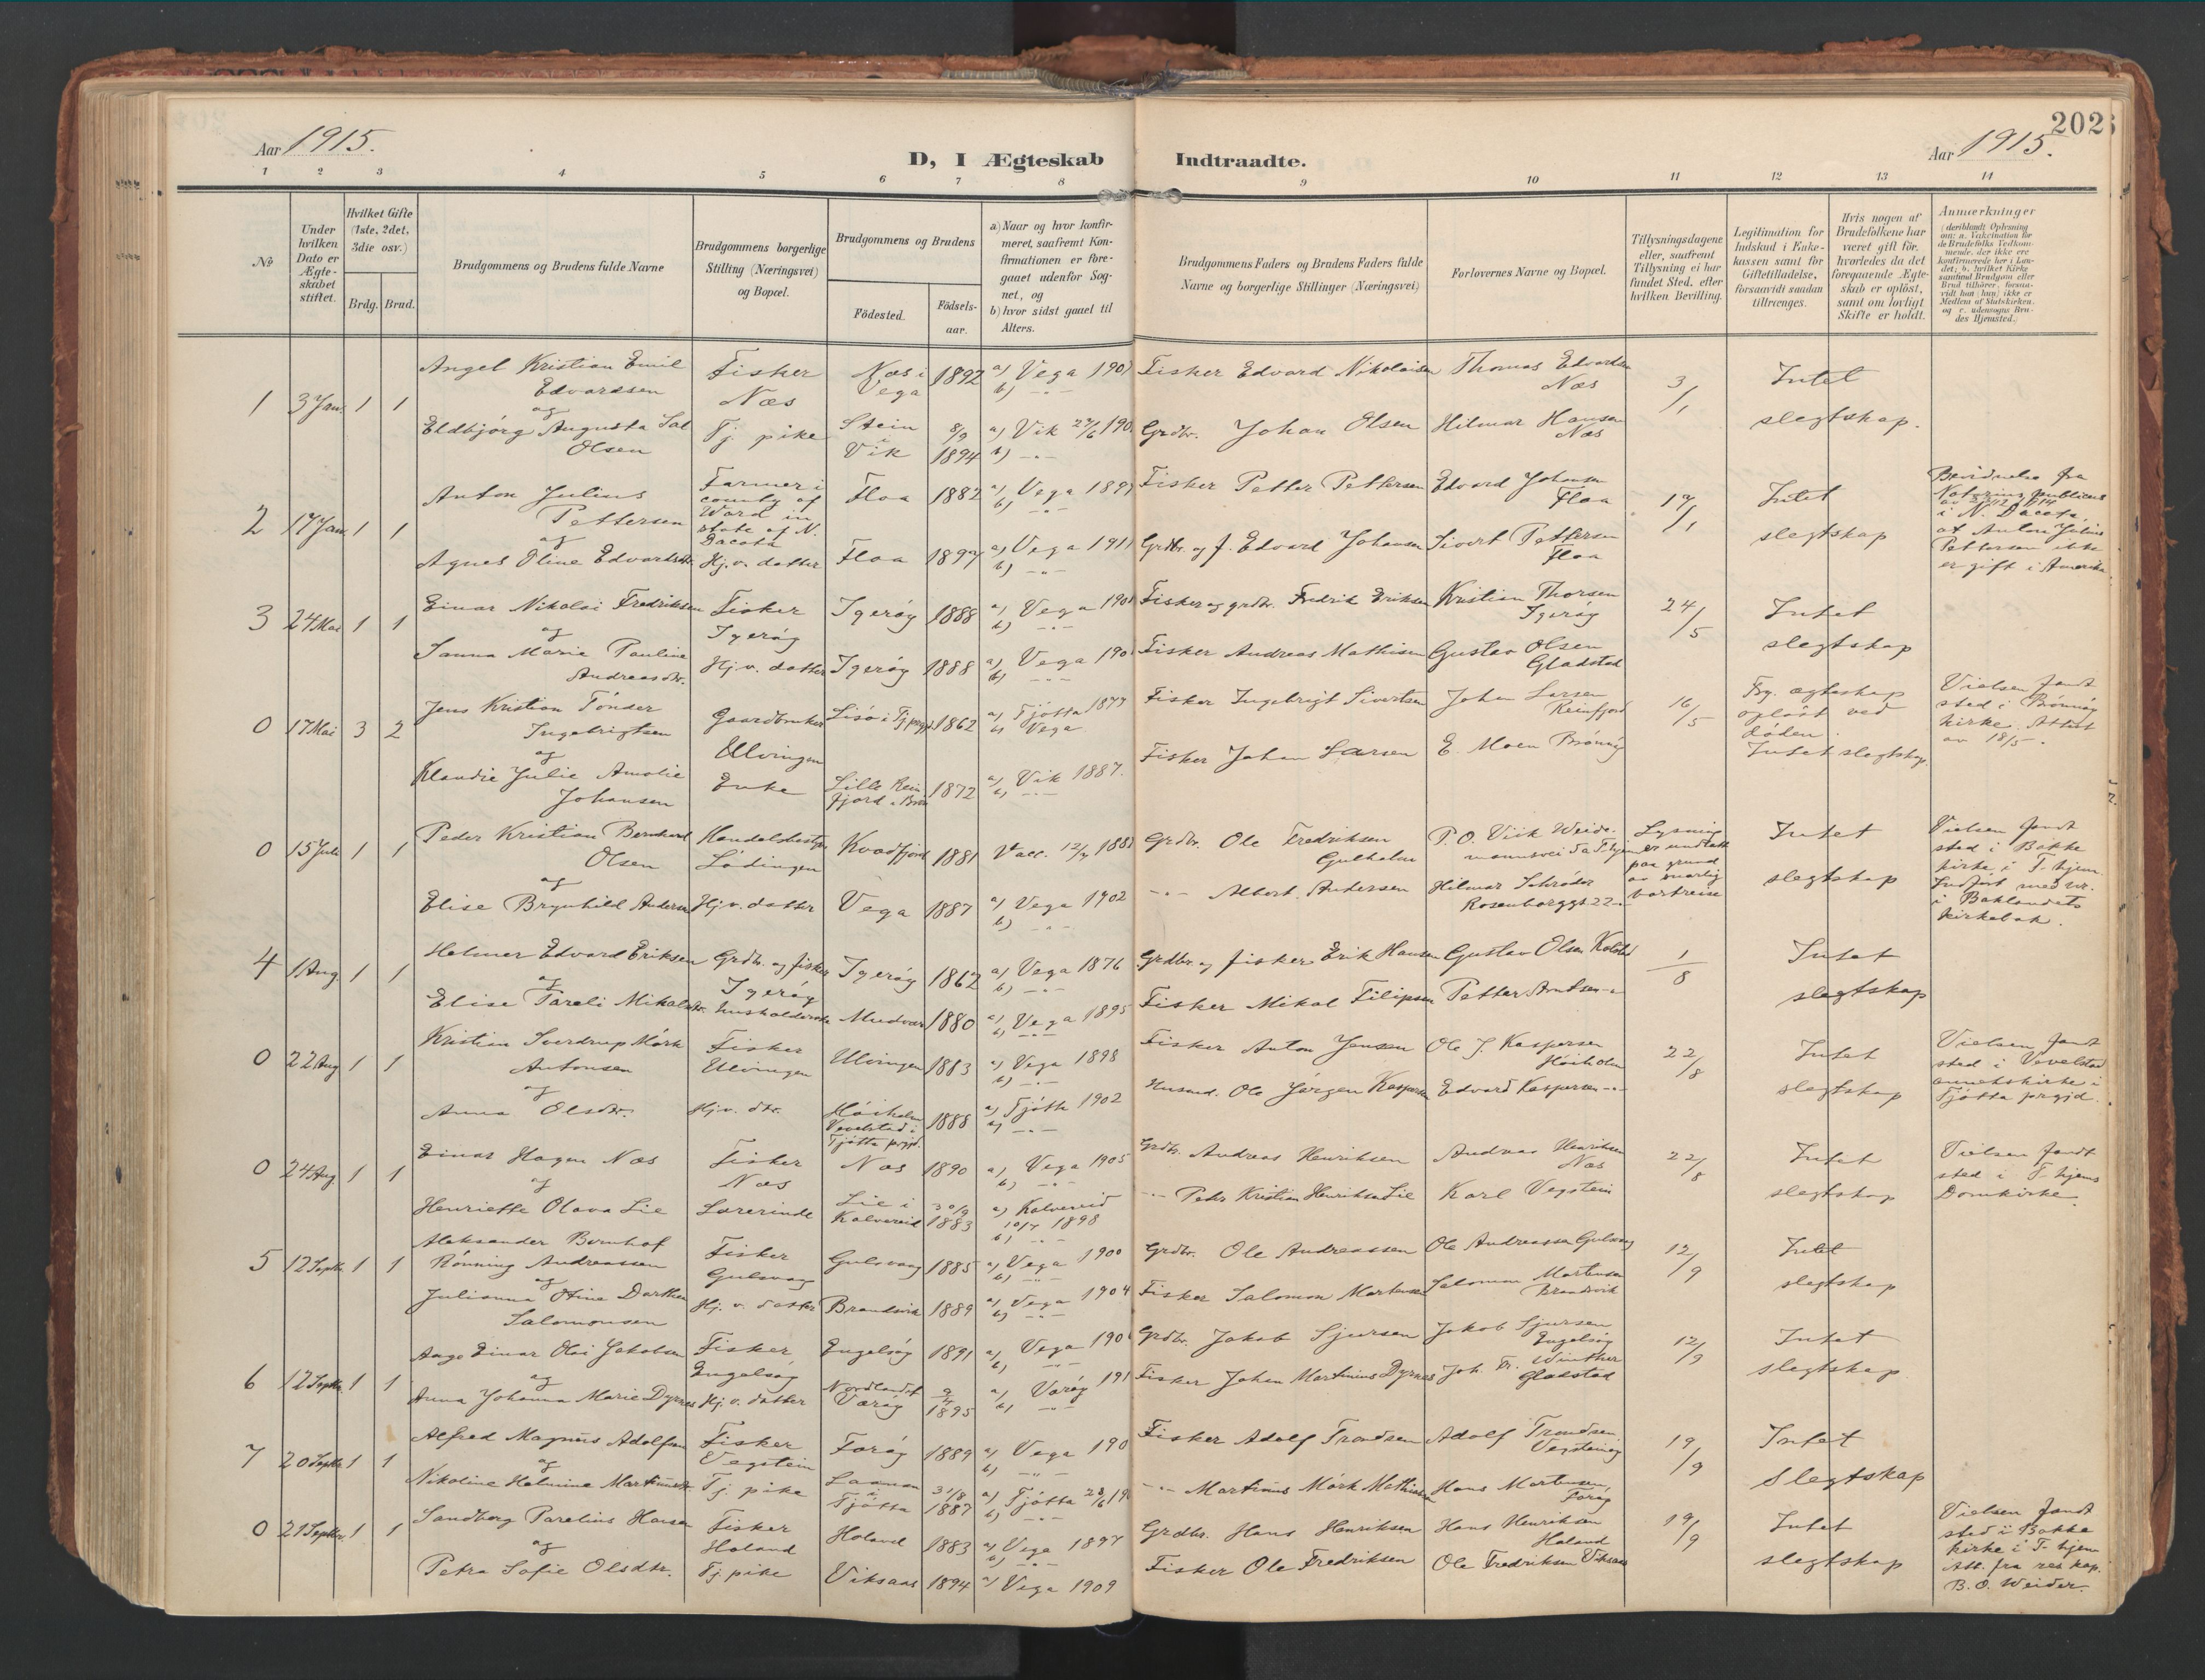 202
Aar 1915.
D, I Ægteskab Indtraadte.
Aar 1915.
1 2 3 4 5 6 7 8 9 10 11 12 13 14
№
Under hvilken Dato er Ægteskabet stiftet.
Hvilket Gifte (1ste, 2det, 3die osv.)
Brdg. Brud.
Brudgommens og Brudens fulde Navne
Brudgommens borgerlige Stilling (Næringsvei) og Bopæl.
Brudgommens og Brudens
Fødested. Fødselsaar.
a) Naar og hvor konfirmeret, saafremt Konfirmationen er foregaaet udenfor Sognet, og
b) hvor sidst gaaet til Alters.
Brudgommens Faders og Brudens Faders fulde Navne og borgerlige Stillinger (Næringsvei)
Forlovernes Navne og Bopæl.
Tillysningsdagene eller, saafremt Tillysning ei har fundet Sted, efter hvilken Bevilling.
Legitimation for Indskud i Enkekassen samt for Giftetilladelse, forsaavidt saadan tiltrænges.
Hvis nogen af Brudefolkene har været gift før, hvorledes da det foregaaende Ægteskab er opløst, samt om lovligt Skifte er holdt.
Anmærkninger
(deriblandt Oplysning om: a. Vakcination for de Brudefolks Vedkommende, der ikke ere konfirmerede her i Landet; b. hvilket Kirkesamfund Brudgom eller Brud tilhører, forsaavidt han (hun) ikke er Medlem af Statskirken, og c. udensogns Brudes Hjemsted.)
1 3 Jan. 1 1 Angel Kristian Emil Edvardsen Fisker Næs Næs i Vega 1892 a) Vega b) -"- Fisker Edvard Nikolaisen Thomas Edvardsen Næs 3/1 Intet slegtskap.
og
Eldbjørg Augusta Olsen Tj. pike Stein i Vik 8/9 1894 a) Vik b) -"- Grdbr. Johan Olsen Hilmar Hansen Næs
2 17 Jan. 1 1 Anton Julius Pettersen Farmer i county of Ward in state of N. Dacota Floa 1882 a) Vega b) -"- Fisker Petter Pettersen Edvard Johansen Floa 17/1 Intet slegtskap Bevidnelse fra Notarius publicus i N. Dacota, at Anton Julius Pettersen ikke er gift i Amerika
og
Agnes Oline Edvardsdtr. Hj.v. datter Floa 1897 a) Vega 1911 b) -"- Grdbr. og f. Edvard Johansen Sivert Pettersen Floa
3 24 Mai 1 1 Einar Nikolai Fredriksen Fisker Igerøy Igerøy 1888 a) Vega b) -"- Fisker og grdbr. Fredrik Eriksen Kristian Thorsen Igerøy 24/5 Intet slegtskap
og
Sanna Marie Pauline Andreasdtr. Hj.v. datter Igerøy 1888 a) Vega b) -"- Fisker Andreas Mathisen Gustav Olsen Gladstad
0 17 Mai 3 2 Jens Kristian Tønder Ingebrigtsen Gaardbruker Ulvingen 1862 a) Tjøtta 1877 b) Vega Fisker Ingebrigt Sivertsen Johan Larsen Reinfjord 16/5 Frg. ægteskap opløst ved døden. Intet slegtskap. Vielsen fandt sted i Brønnøy kirke. Attest av 18/5.
og
Klaudie Julie Amalie Johansen Enke Lille Reinfjord i Brøn 1872 a) Vik 1887. b) -"- Fisker Johan Larsen E. Moen Brønnøy
0 15 Juli 1 1 Peder Kristian Bernhard Olsen Lødingen Kvædfjord 1881 Vacc. Grdbr. Ole Fredriksen Gulholm P.O. Viik Lysning er undlatt paa grund av snarlig bortreise Intet slegtskap Vielsen fandt sted i Bakke kirke i T.hjem. Indført med nr. i Baklandets kirkebok.
og
Elise Brynhild Andersen Hj.v. datter Vega 1887 a) Vega 1902 b) -"- -"- Albert Andersen Hilmar Schrøder Rosenborggt. 22
4 1 Aug. 1 1 Helmer Edvard Eriksen Grdbr. og fisker Igerøy Igerøy 1862 a) Vega 1876 b) -"- Grdbr. og fisker Erik Hansen Gustav Olsen 1/8 Intet slegtskap
og
Elise Pareli Mikalsdtr. husholderske Mudvær 1880 a) Vega 1895 b) -"- Fisker Mikal Filipsen Petter
0 22 Aug 1 1 Kristian Sverdrup Mørk Antonsen Fisker Ulvingen Ulvingen 1883 a) Vega 1898 b) -"- Fisker Anton Jensen Ole J. Kaspersen Høiholm 22/8 Intet slegtskap Vielsen fandt sted i Vevelstad annekskirke i Tjøtta prgjd.
og
Anna Olsdtr. Hj.v. dtr. Høiholm Vevelstad i Tjøtta prgjd. 1888 a) Tjøtta 1902 b) -"- Husmd. Ole Jørgen Kaspersen Edvard Kaspersen -"-
0 24 Aug. 1 1 Einar Hagen Næs Fisker Næs Næs 1890 a) Vega 1905 b) -"- Grdbr. Andreas Henriksen Andreas Henriksen Næs 22/8 Intet slegtskap Vielsen fandt sted i T.hjems Domkirke.
og
Henriette Olava Lie Lærerinde Lie i Kolvereid 30/9 1883 a) Kolvereid 10/7 1898 b) -"- -"- Peder Kristian Henriksen Lie Karl Vegstein
5 12 Septbr. 1 1 Aleksander Bernhof Rønning Andreassen Fisker Gulsvaag Gulsvaag 1885 a) Vega 1900 b) -"- Grdbr. Ole Andreassen Ole Andreassen Gulsvaag 12/9 Intet slegtskap
og
Julianna Stine Dorthea Salomonsen Hj.v. datter Brandsvik 1889 a) Vega 1904 b) -"- Fisker Salomon Mortensen Salomon Mortensen Brandsvik
6 12 Septbr. 1 1 Aage Einar Olai Jakobsen Fisker Engelsøy Engelsøy 1891 a) Vega b) -"- Grdbr. Jakob Sjursen Jakob Sjursen Engelsøy 12/9 Intet slegtskap
og
Anna Johanna Marie Dyrnes Hj.v. datter Nordlandet Værøy 1895 a) Værøy b) -"- Fisker Johan Martinius Dyrnes Joh. Fr. Winther Gladstad
7 20 Septbr. 1 1 Alfred Magnus Adolfsen Fisker Vegstein Forøy 1889 a) Vega b) -"- Fisker Adolf Trondsen Adolf Trondsen, 19/9 Intet slegtskap
og
Nikoline Helmine Martinusdtr. Tj. pike Tjøtta 31/8 1887 a) Tjøtta b) -"- -"- Martinus Mørk Mathisen Hans Mortensen, Forøy
0 21 Septbr. 1 1 Sandberg Parelius Hansen Fisker Holand Holand 1883 a) Vega 1897 b) -"- Grdbr. Hans Henriksen Hans Henriksen Holand 19/9 Intet slegtskap Vielsen fandt sted i Bakke kirke i T.hjem Att. fra res. kap. B.O. Weider.
og
Petra Sofie Olsdtr. Tj. pike Viksaas 1894 a) Vega 1909 Fisker Ole Fredriksen Ole Fredriksen Viksaas